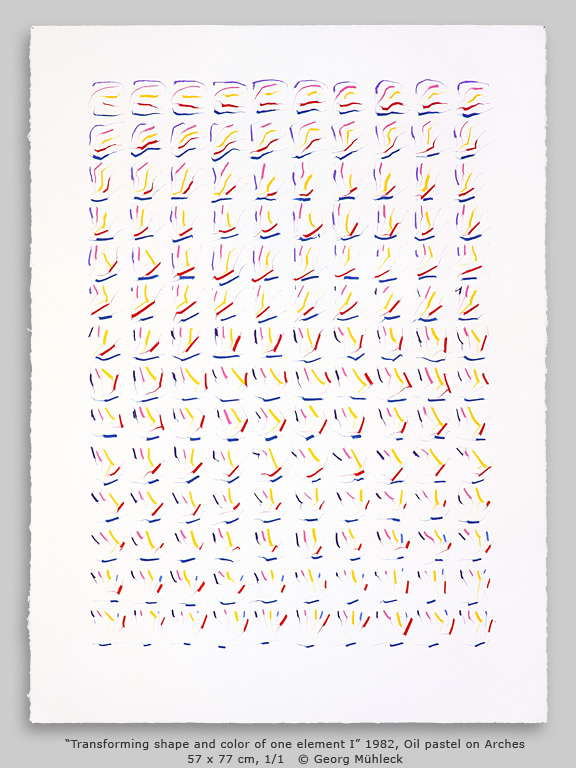 “Transforming shape and color of one element I” 1982, Oil pastel on Arches
57 x 77 cm, 1/1 © Georg Mühleck